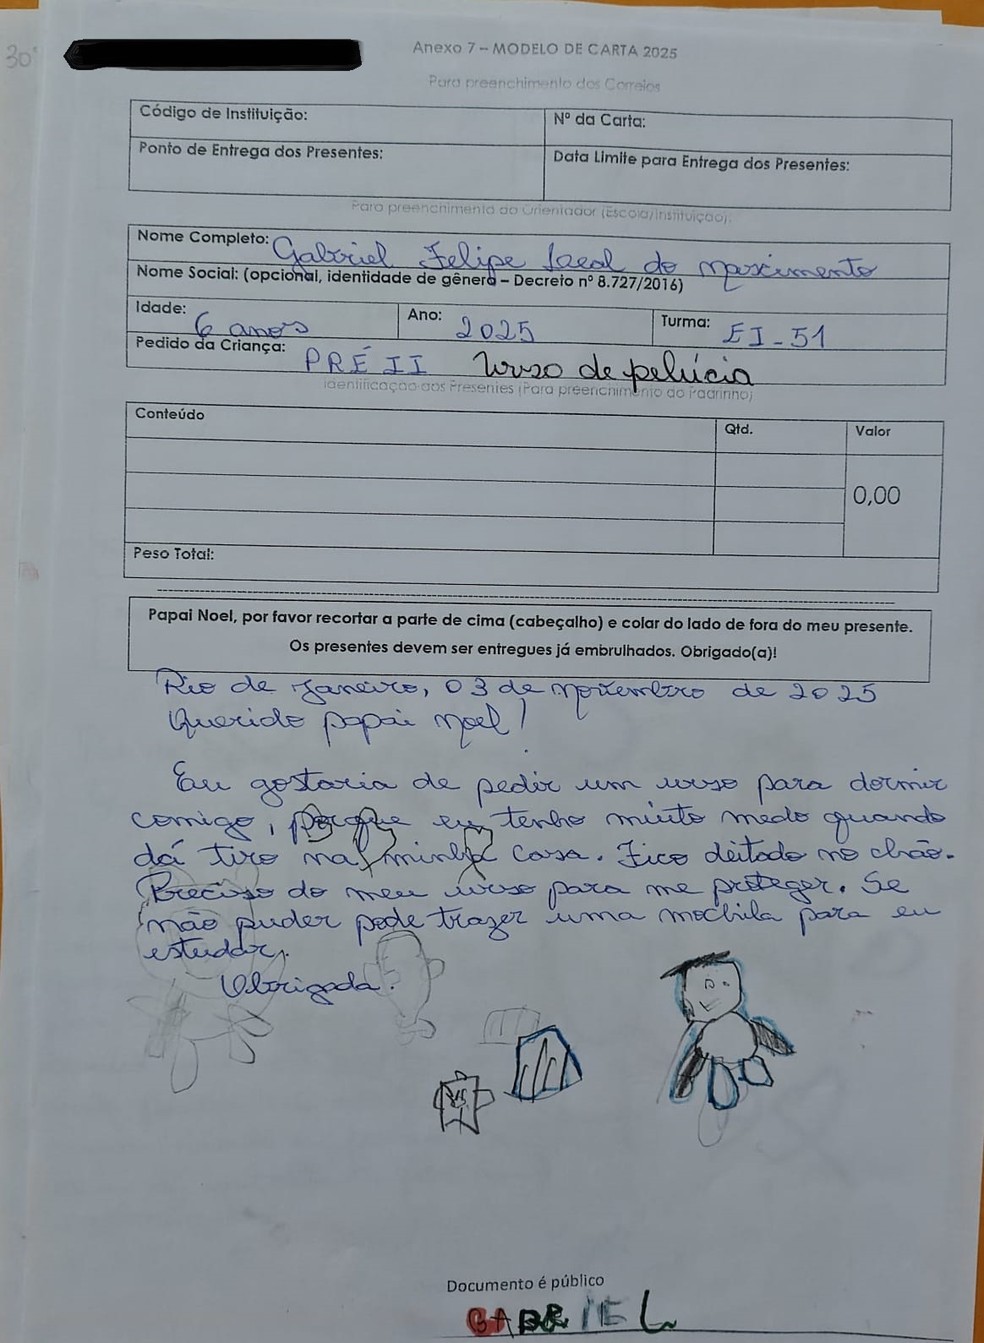 30
Anexo 7 – MODELO DE CARTA 2025
Para preenchimento dos Correios
Código de Instituição:
Nº da Carta:
Ponto de Entrega dos Presentes:
Data Limite para Entrega dos Presentes:
Para preenchimento do Orientador (Escola/Instituição):
Nome Completo: Gabriel Felipe do nascimento
Nome Social: (opcional, identidade de gênero – Decreto nº 8.727/2016)
Idade: 6 anos
Ano: 2025
Turma: EI-51
Pedido da Criança: PRÉ II Urso de pelúcia
Identificação dos Presentes (Para preenchimento do Padrinho)
Conteúdo
Qtd.
Valor
0,00
Peso Total:
Papai Noel, por favor recortar a parte de cima (cabeçalho) e colar do lado de fora do meu presente.
Os presentes devem ser entregues já embrulhados. Obrigado(a)!
Rio de Janeiro, 03 de novembro de 2025
Querido papai noel!
Eu gostaria de pedir um urso para dormir
comigo, porque eu tenho muito medo quando
dá tiro na minha casa. Fico deitado no chão.
Preciso do meu urso para me proteger. Se
não puder pode trazer uma mochila para eu
estudar.
Obrigada.
Documento é público
GABRIEL